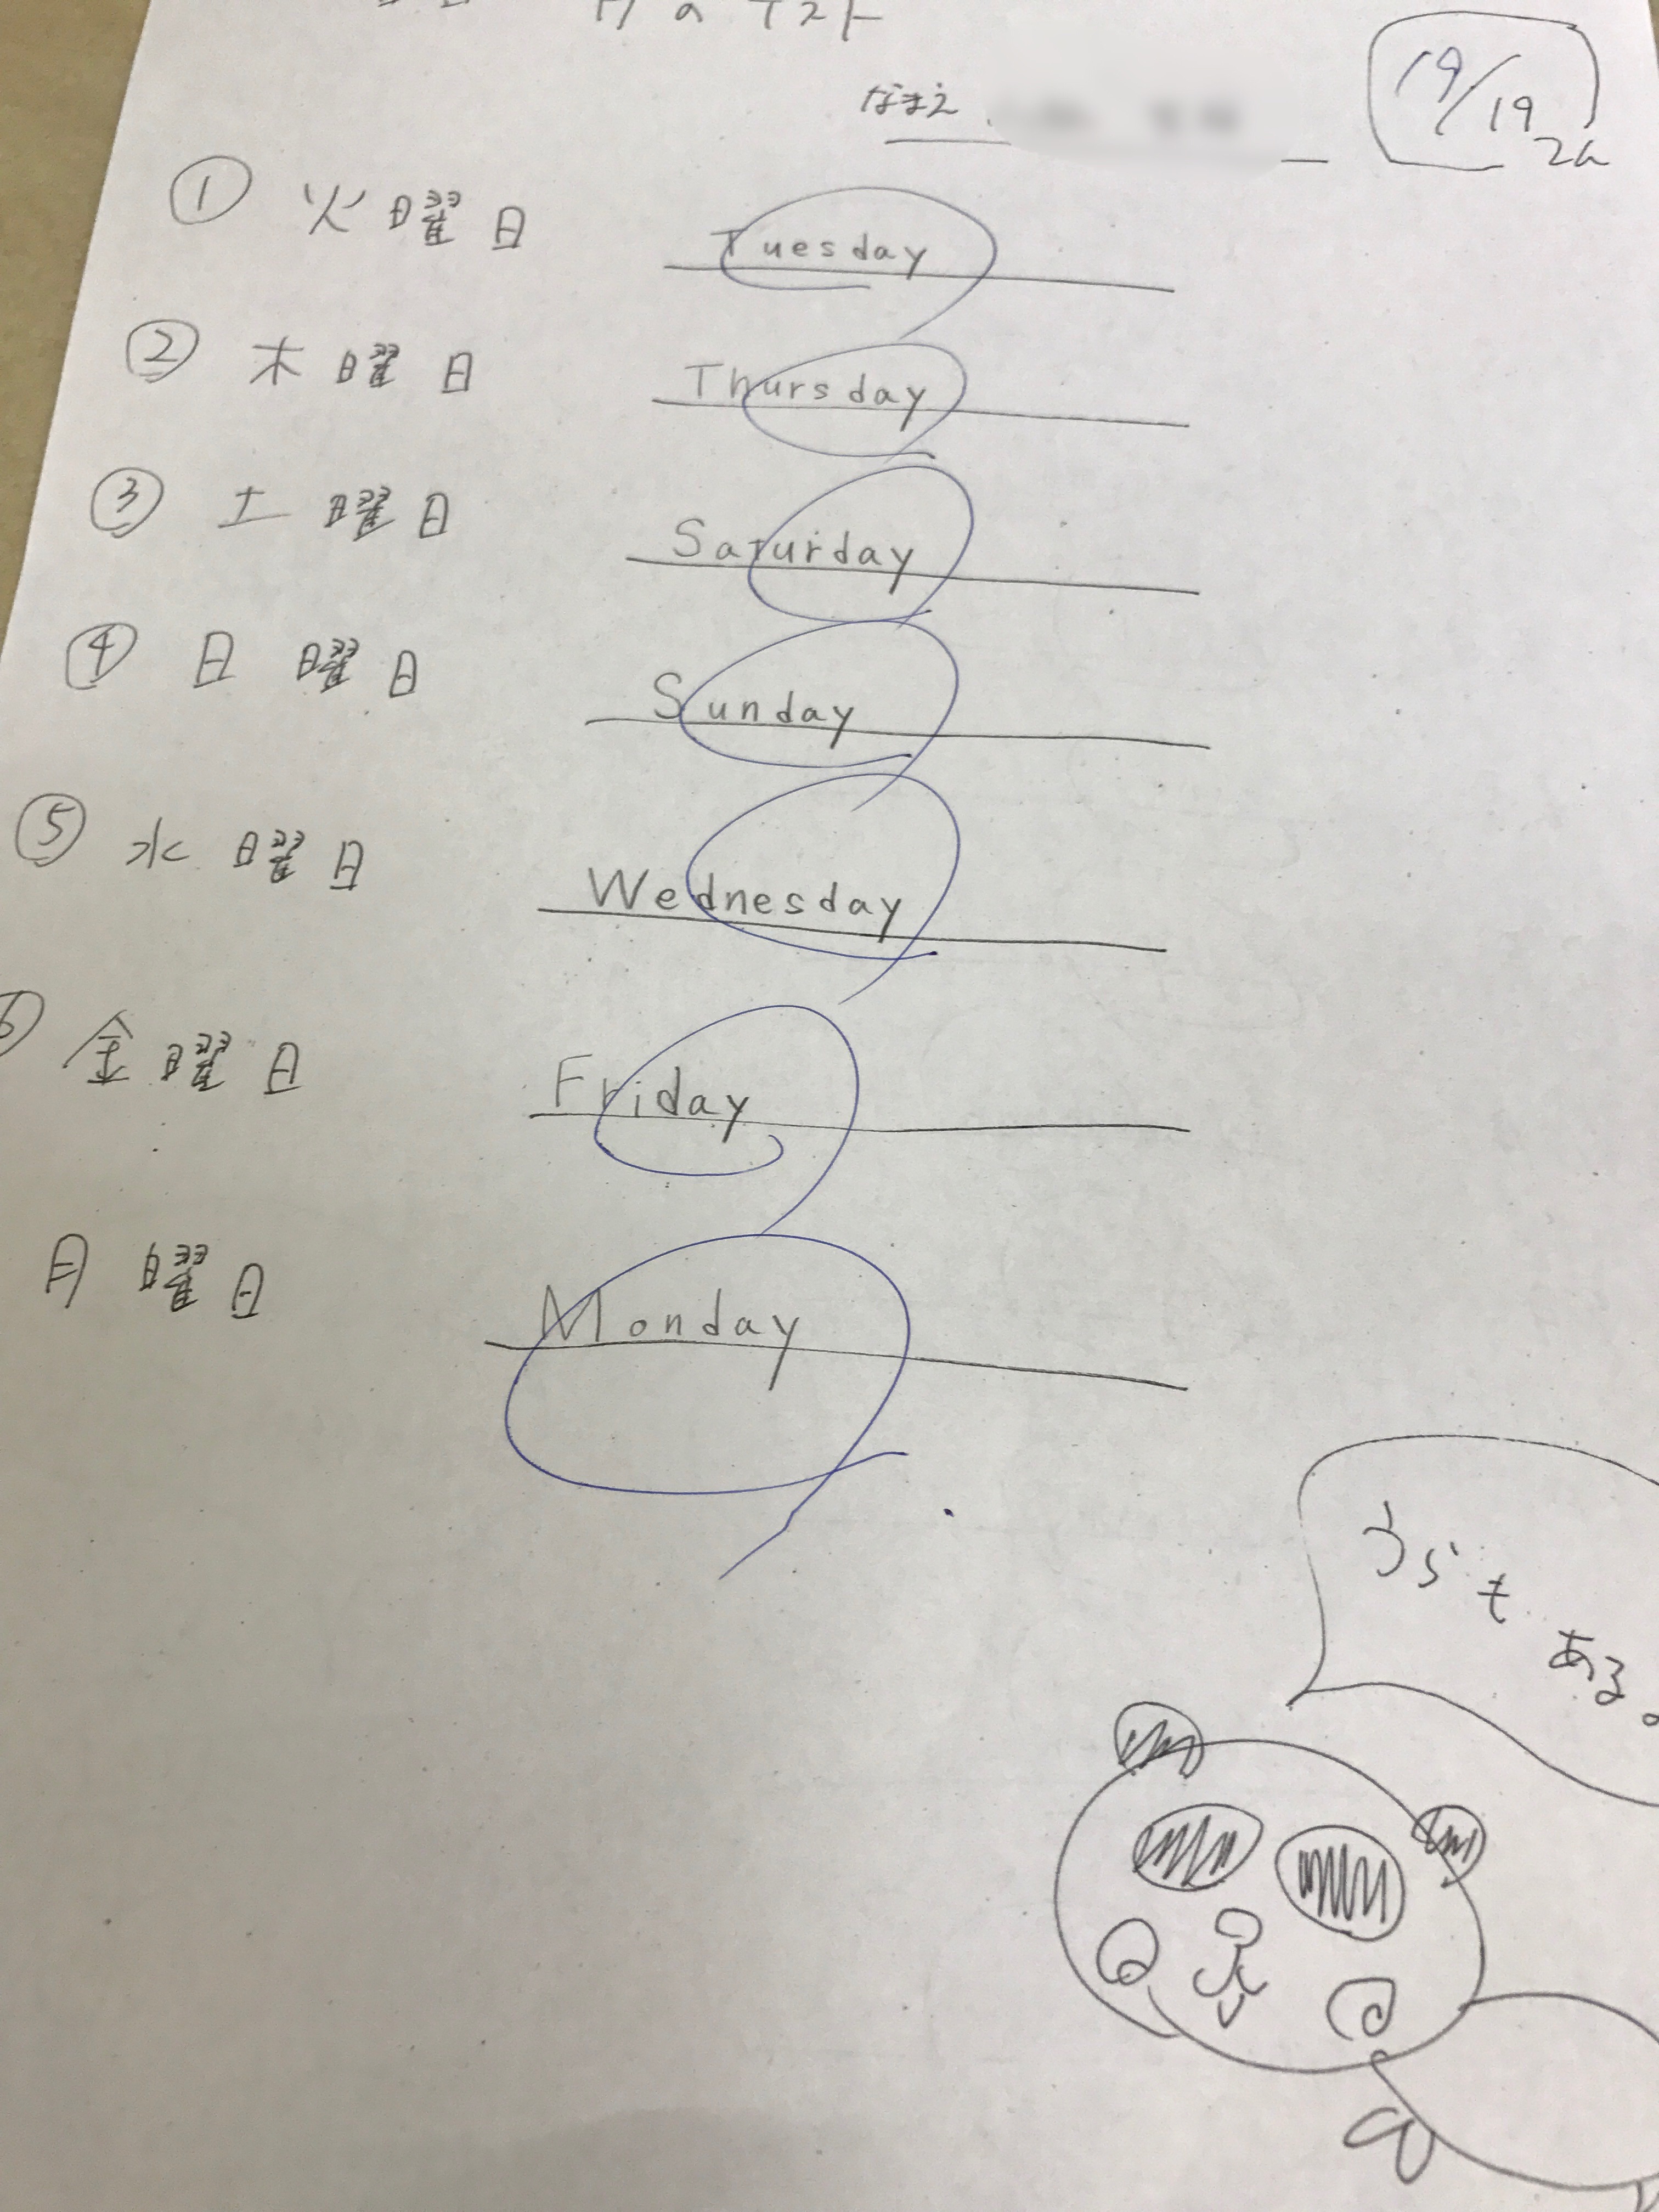 のテスト
なまえ
19/19
① 火曜日 Tuesday
② 木曜日 Thursday
③ 土曜日 Saturday
④ 日曜日 Sunday
⑤ 水曜日 Wednesday
⑥ 金曜日 Friday
月曜日 Monday
うらも
ある。